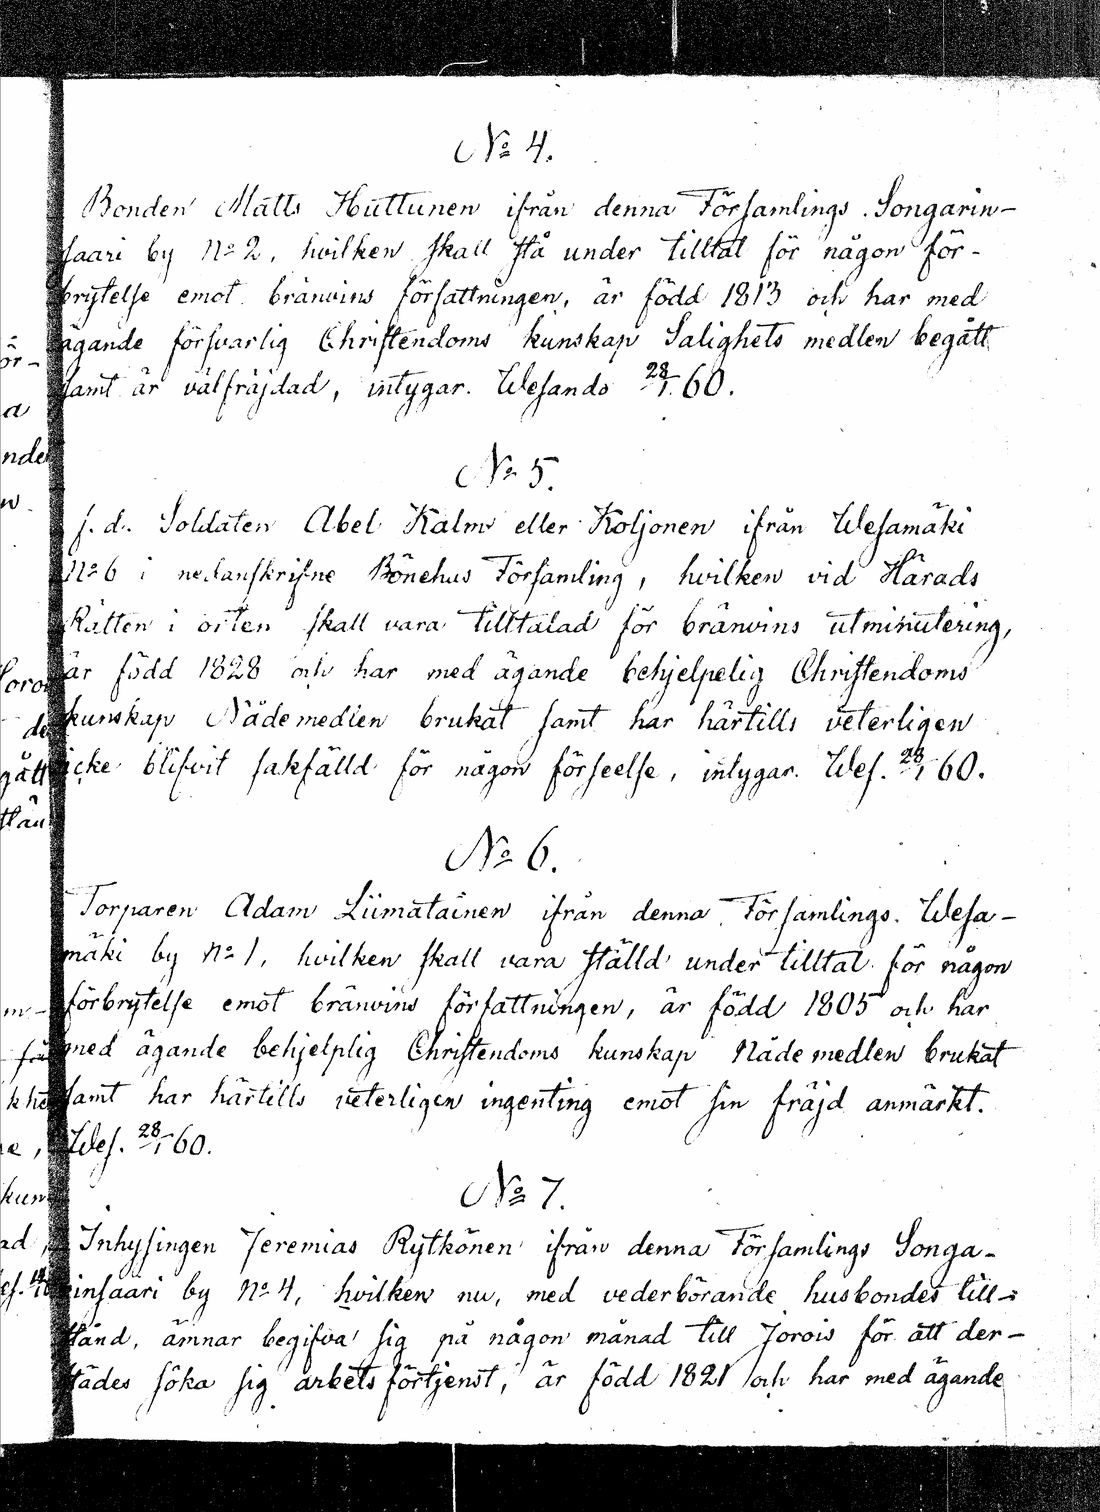 No 4.
Bonden Matts Huttunen ifrån denna Församlings Songarin-
saari by No 2, hvilken skall stå under tilltal för någon för-
brytelse emot bränvins författningen, är född 1813 och har med
ägande försvarlig Christendoms kunskap Salighets medlen begått
samt är välfräjdad, intygar. Wesando 28/1 60.
No 5.
f. d. Soldaten Abel Kalm eller Koljonen ifrån Wesamäki
No 6 i nedanskrifne Bönehus Församling, hvilken vid Härads
Rätten i orten skall vara tilltalad för bränvins utminutering,
är född 1828 och har med ägande behjelpelig Christendoms
kunskap Nådemedlen brukat samt har härtills veterligen
icke blifvit sakfälld för någon förseelse, intygar. Wes. 28/1 60.
No 6.
Torparen Adam Liimatainen ifrån denna Församlings Wesa-
mäki by No 1, hvilken skall vara ställd under tilltal för någon
förbrytelse emot bränvins författningen, är född 1805 och har
med ägande behjelplig Christendoms kunskap Nådemedlen brukat
samt har härtills veterligen ingenting emot sin fräjd anmärkt.
Wes. 28/1 60.
No 7.
Inhysingen Jeremias Rytkönen ifrån denna Församlings Songa-
rinsaari by No 4, hvilken nu, med vederbörande husbondes till-
stånd, ämnar begifva sig på någon månad till Jorois för att der-
städes söka sig arbetsförtjenst, är född 1821 och har med ägande